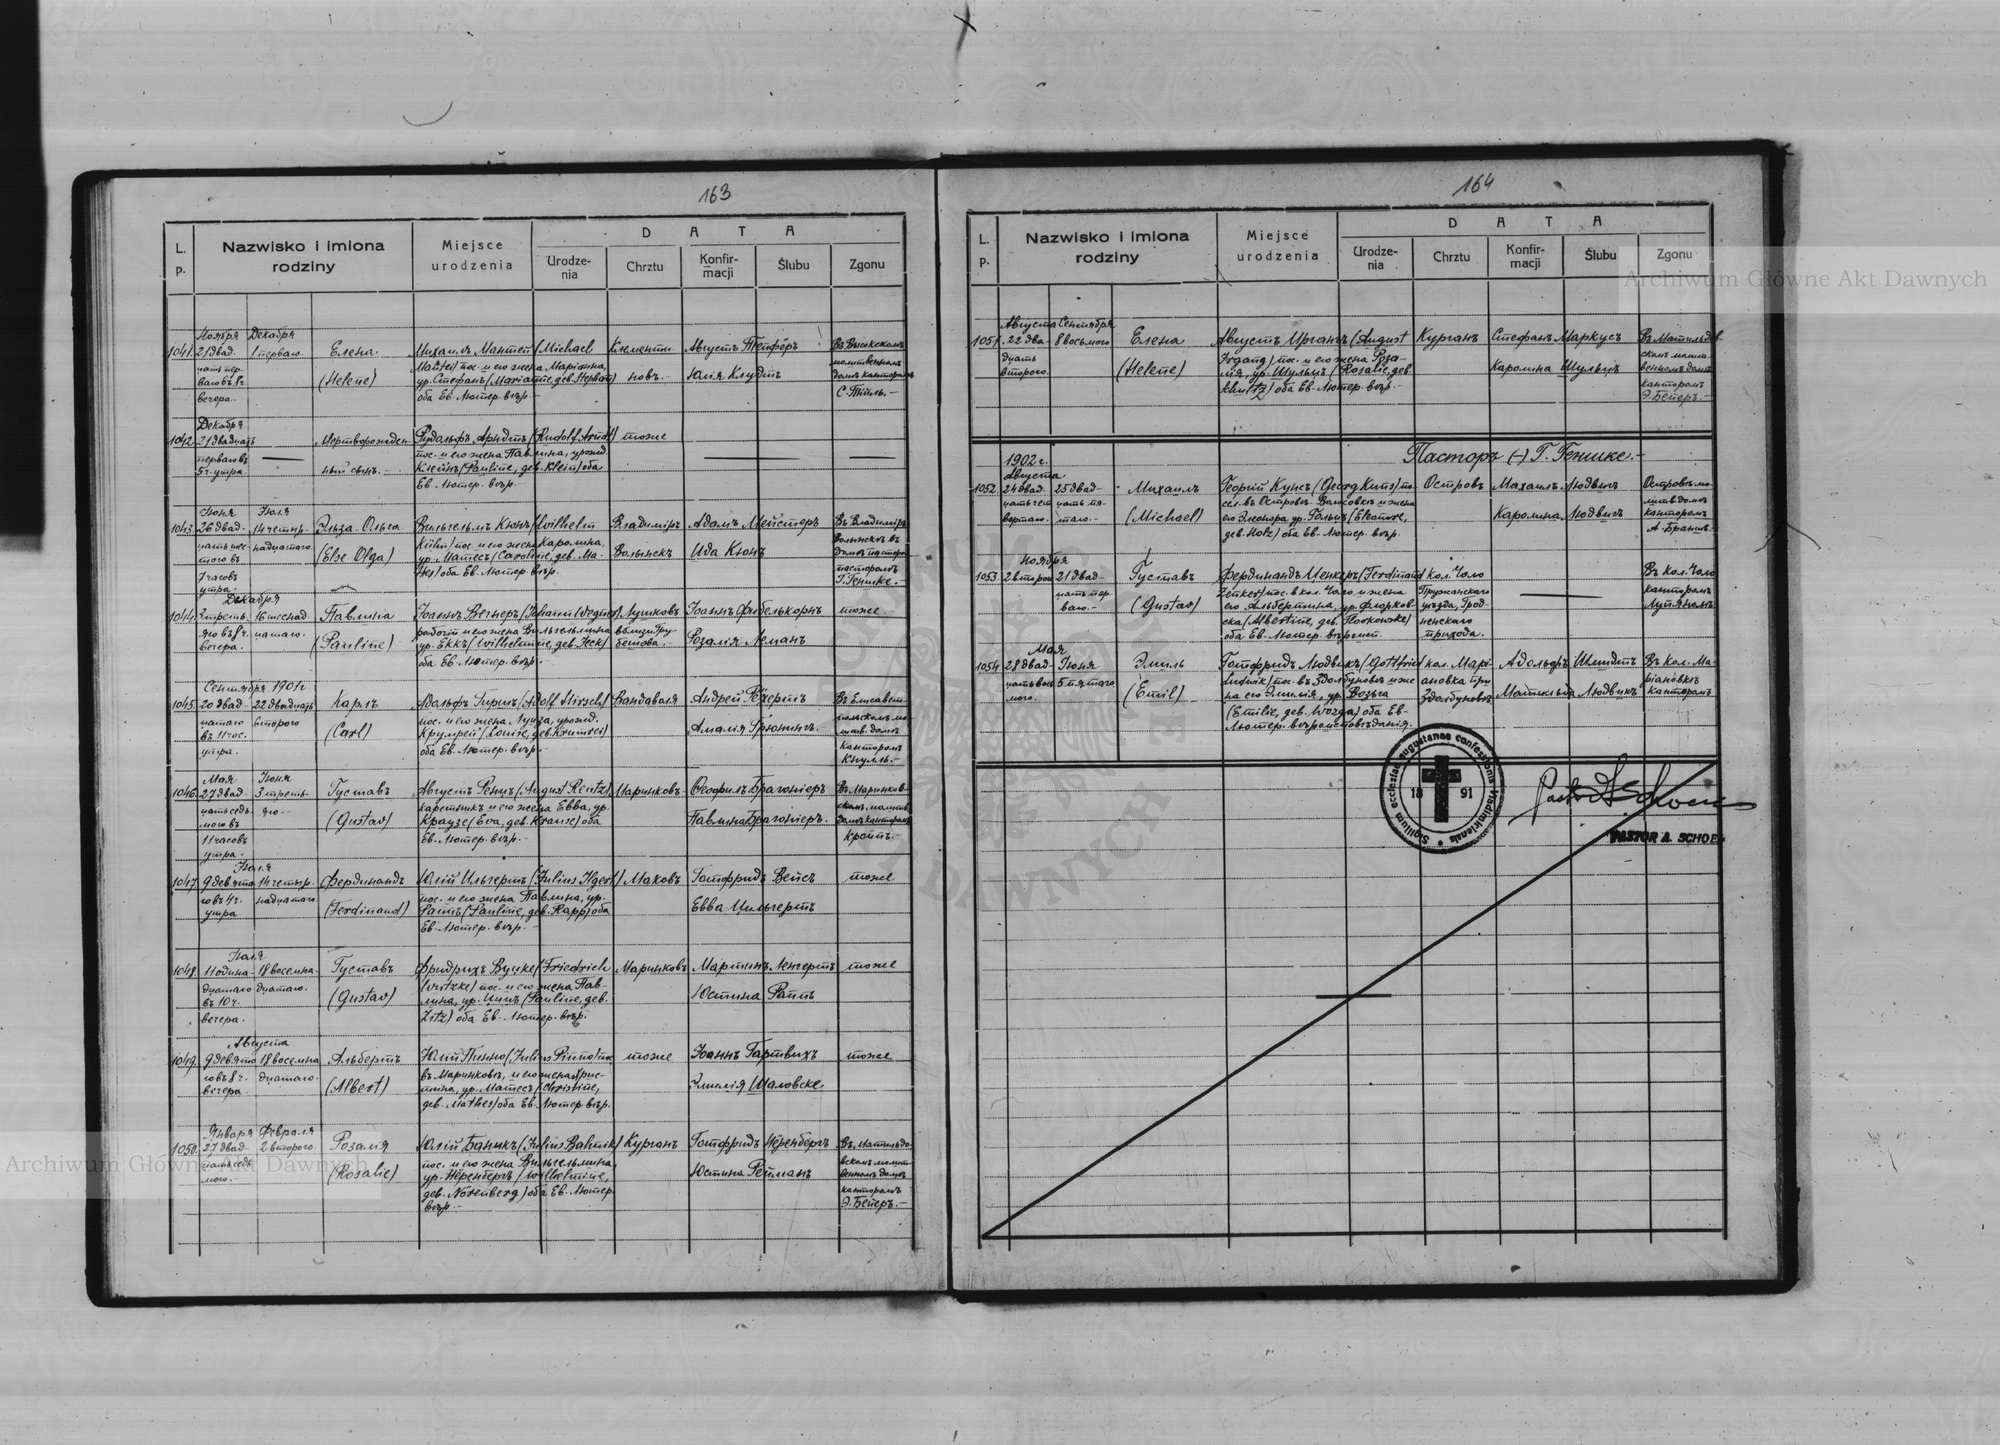 163
L. p.
Nazwisko i imiona rodziny
Miejsce urodzenia
D A T A
Urodze-nia
Chrztu
Konfir-macji
Ślubu
Zgonu
1041. Ноября 21 двад-цать пер-ваго въ 8ч. вечера.
Декабря 1 перваго
Елена (Helene)
Михаилъ Мантей (Michael
Mantei) пос. и его жена Маріанна,
ур. Стефанъ (Marianne, дев. Stephan)
оба Ев. Лютер. вѣр. –
Клементи-новъ.
Августъ Тепферъ
Юлія Клудтъ
С. Тиль. –
1042. Декабря 21 двадцать перваго въ 5 ч. утра.
Мертворожден-ный сынъ. –
Рудольфъ Арндтъ (Rudolf Arndt)
пос. и его жена Павлина, урожд.
Клейнъ (Pauline, дев. Klein) оба
Ев. Лютер. вѣр. –
тоже
1043. Іюня 26 двад-цать шес-того въ 7 часовъ утра.
Іюля 14 четыр-надцатаго.
Эльза-Ольга (Else Olga)
Вильгельмъ Кюнъ (Wilhelm
Kühn) пос. и его жена Каролина,
оба Ев. Лютер. вѣр.
Владиміръ Волынскъ
Адамъ Мейстеръ
Ида Кюнъ
Въ Владимірѣ Волынскѣ въ домѣ пастора пасторомъ Г. Генике. –
1044. Декабря 3 треть-яго въ 8 ч. вечера.
16 шеснад-цатаго.
Павлина (Pauline)
Іоаннъ Вегнеръ (Johann Wegner)
рабочій и его жена Вильгельмина
ур. Еккъ (Wilhelmine, дев. Jeck)
оба Ев. Лютер. вѣр. –
Лушковъ вблизи Гру-бешова. –
Іоаннъ Фибелькорнъ
Розалія Леманъ
тоже
1045. Сентября 1901 г. 20 двад-цатаго въ 11 час. утра.
22 двадцать второго
Карлъ (Carl)
Адольфъ Гиршъ (Adolf Hirsch)
пос. и его жена Луиза, урожд.
Крумрей (Louise, дев. Krumrei)
оба Ев. Лютер. вѣр. –
Вандаваля
Амалія Грюнингъ. –
Въ Елисавет-польскомъ мо-литв. домѣ канторомъ Кнулль. –
1046. Мая 27 двад-цать седь-мого въ 11 часовъ утра.
Іюня 3 треть-яго. –
Густавъ (Gustav)
Августъ Ренцъ (August Rentz)
каретникъ и его жена Евва, ур.
Краузе (Eva, дев. Krause) оба
Ев. Лютер. вѣр. –
Маринковъ
Ѳеофилъ Брагоніеръ
Павлина Брагоніеръ.
1047. Іюля 9 девята-го въ 4 ч. утра.
14 четыр-надцатаго
Фердинандъ (Ferdinand)
Юлій Ильгертъ (Julius Ilgert)
пос. и его жена Павлина, ур.
Раппъ (Pauline, дев. Rapp) оба
Ев. Лютер. вѣр. –
Маковъ
Готфридъ Вейсъ
Евва Цильгертъ
тоже
1048. Іюля 11 одина-дцатаго въ 10 ч. вечера.
18 восемна-дцатаго.
Густавъ (Gustav)
Фридрихъ Вуцке (Friedrich
Wutzke) пос. и его жена Пав-
лина, ур. Цицъ (Pauline, дев.
Zitz) оба Ев. Лютер. вѣр. –
Маринковъ
Мартинъ Ленгертъ
Юстина Раппъ
тоже
1049. Августа 9 девята-го въ 8 ч. вечера.
18 восемна-дцатаго.
Альбертъ (Albert)
Юлій Пинно (Julius Pinno) пос.
въ Маринковѣ, и его жена Хрис-
тина, ур. Матесъ (Christine,
дев. Mathes) оба Ев. Лютер. вѣр.
тоже
Іоаннъ Гартвихъ
Эмилія Шаловске
тоже
1050. Января 27 двад-цать седь-мого. –
Февраля 2 второго.
Розалія (Rosalie)
Юлій Баникъ (Julius Bahnik)
пос. и его жена Вильгельмина,
ур. Нёренбергъ (Wilhelmine,
дев. Nörenberg) оба Ев. Лютер.
вѣр. –
Курганъ
Готфридъ Нёренбергъ
Юстина Рейманъ
Въ Матильдо-вскомъ молит-венномъ домѣ канторомъ Э. Бейеръ. –
164
L. p.
Nazwisko i imiona rodziny
Miejsce urodzenia
D A T A
Urodze-nia
Chrztu
Konfir-macji
Ślubu
Zgonu
1051. Августа 22 два-дцать второго.
Сентября 8 восьмого
Елена (Helene)
Августъ Ирганъ (August
Irgang) пос. и его жена Роза-
лія, ур. Шульцъ (Rosalie, дев.
Schultz) оба Ев. Лютер. вѣр. –
Курганъ
Стефанъ Маркусъ
Каролина Шульцъ
Въ Матильдов-скомъ молит-венномъ домѣ канторомъ Э. Бейеръ. –
Пасторъ (–) Г. Генике. –
1902 г.
1052. Августа 24 двад-цать чет-вертаго.
25 двад-цать пя-таго. –
Михаилъ (Michael)
Георгій Кунсъ (Georg Kuns) по-
его Элеонора ур. Гольцъ (Eleonore,
дев. Holz) оба Ев. Лютер. вѣр.
Островъ
Михаилъ Людвигъ
Каролина Людвигъ
1053. Ноября 2 второ
21 двад-цать пер-ваго. –
Густавъ (Gustav)
Фердинандъ Ценкеръ (Ferdinand
Zenker) пос. в кол. Чоло и жена
его Альбертина, ур. Флорков-
ска (Albertine, дев. Florkowske)
оба Ев. Лютер. вѣроисп.
кол. Чоло Пружанскаго уѣзда, Грод-ненскаго прихода.
Въ кол. Чоло канторомъ
1054. Мая 28 двад-цать вось-мого.
Іюня 5 пятаго
Эмиль (Emil)
Готфридъ Людвикъ (Gottfried
Ludwik) пос. въ Здолбуновѣ и же-
на его Эмилія, ур. Возьга
(Emilie, дев. Wozga) оба Ев.
Лютер. вѣроисповѣданія.
кол. Марі-ановка при Здолбуновѣ
Адольфъ Шмидтъ
Матильда Людвикъ
Въ кол. Ма-ріановкѣ канторомъ
Sigillum ecclesiae augustanae confessionis Vladimiriensis
18 91
Pastor A Schoen
PASTOR A. SCHOE
Archiwum Główne Akt Dawnych
Archiwum Główne Akt Dawnych